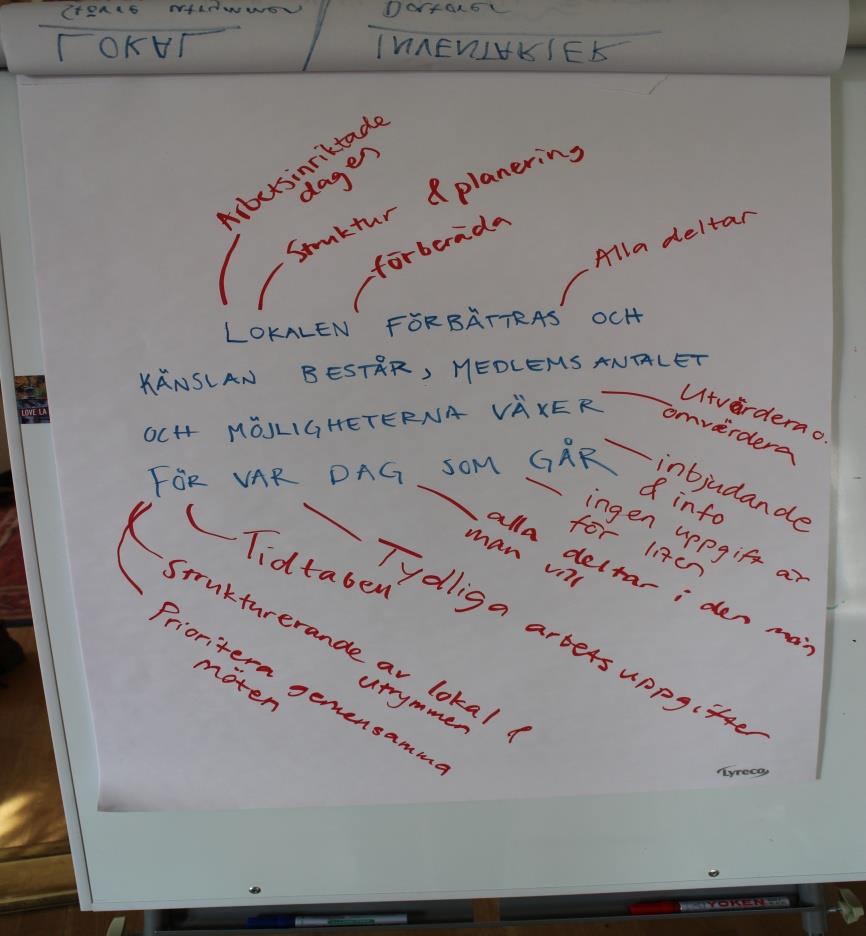 LOKAL / INVENTARIER
Arbetsinriktade
dagen
Struktur & planering
förberäda
Alla deltar
LOKALEN FÖRBÄTTRAS OCH
KÄNSLAN BESTÅR, MEDLEMSANTALET
OCH MÖJLIGHETERNA VÄXER
FÖR VAR DAG SOM GÅR
Utvärdera o.
omvärdera
inbjudande
& info
ingen uppgift är
för liten
alla deltar i den mån
man vill
Tydliga arbetsuppgifter
Tidtabell
Strukturerande av lokal &
utrymmen
Prioritera gemensamma
möten
Lyreco
LOVE LA
YOKEN